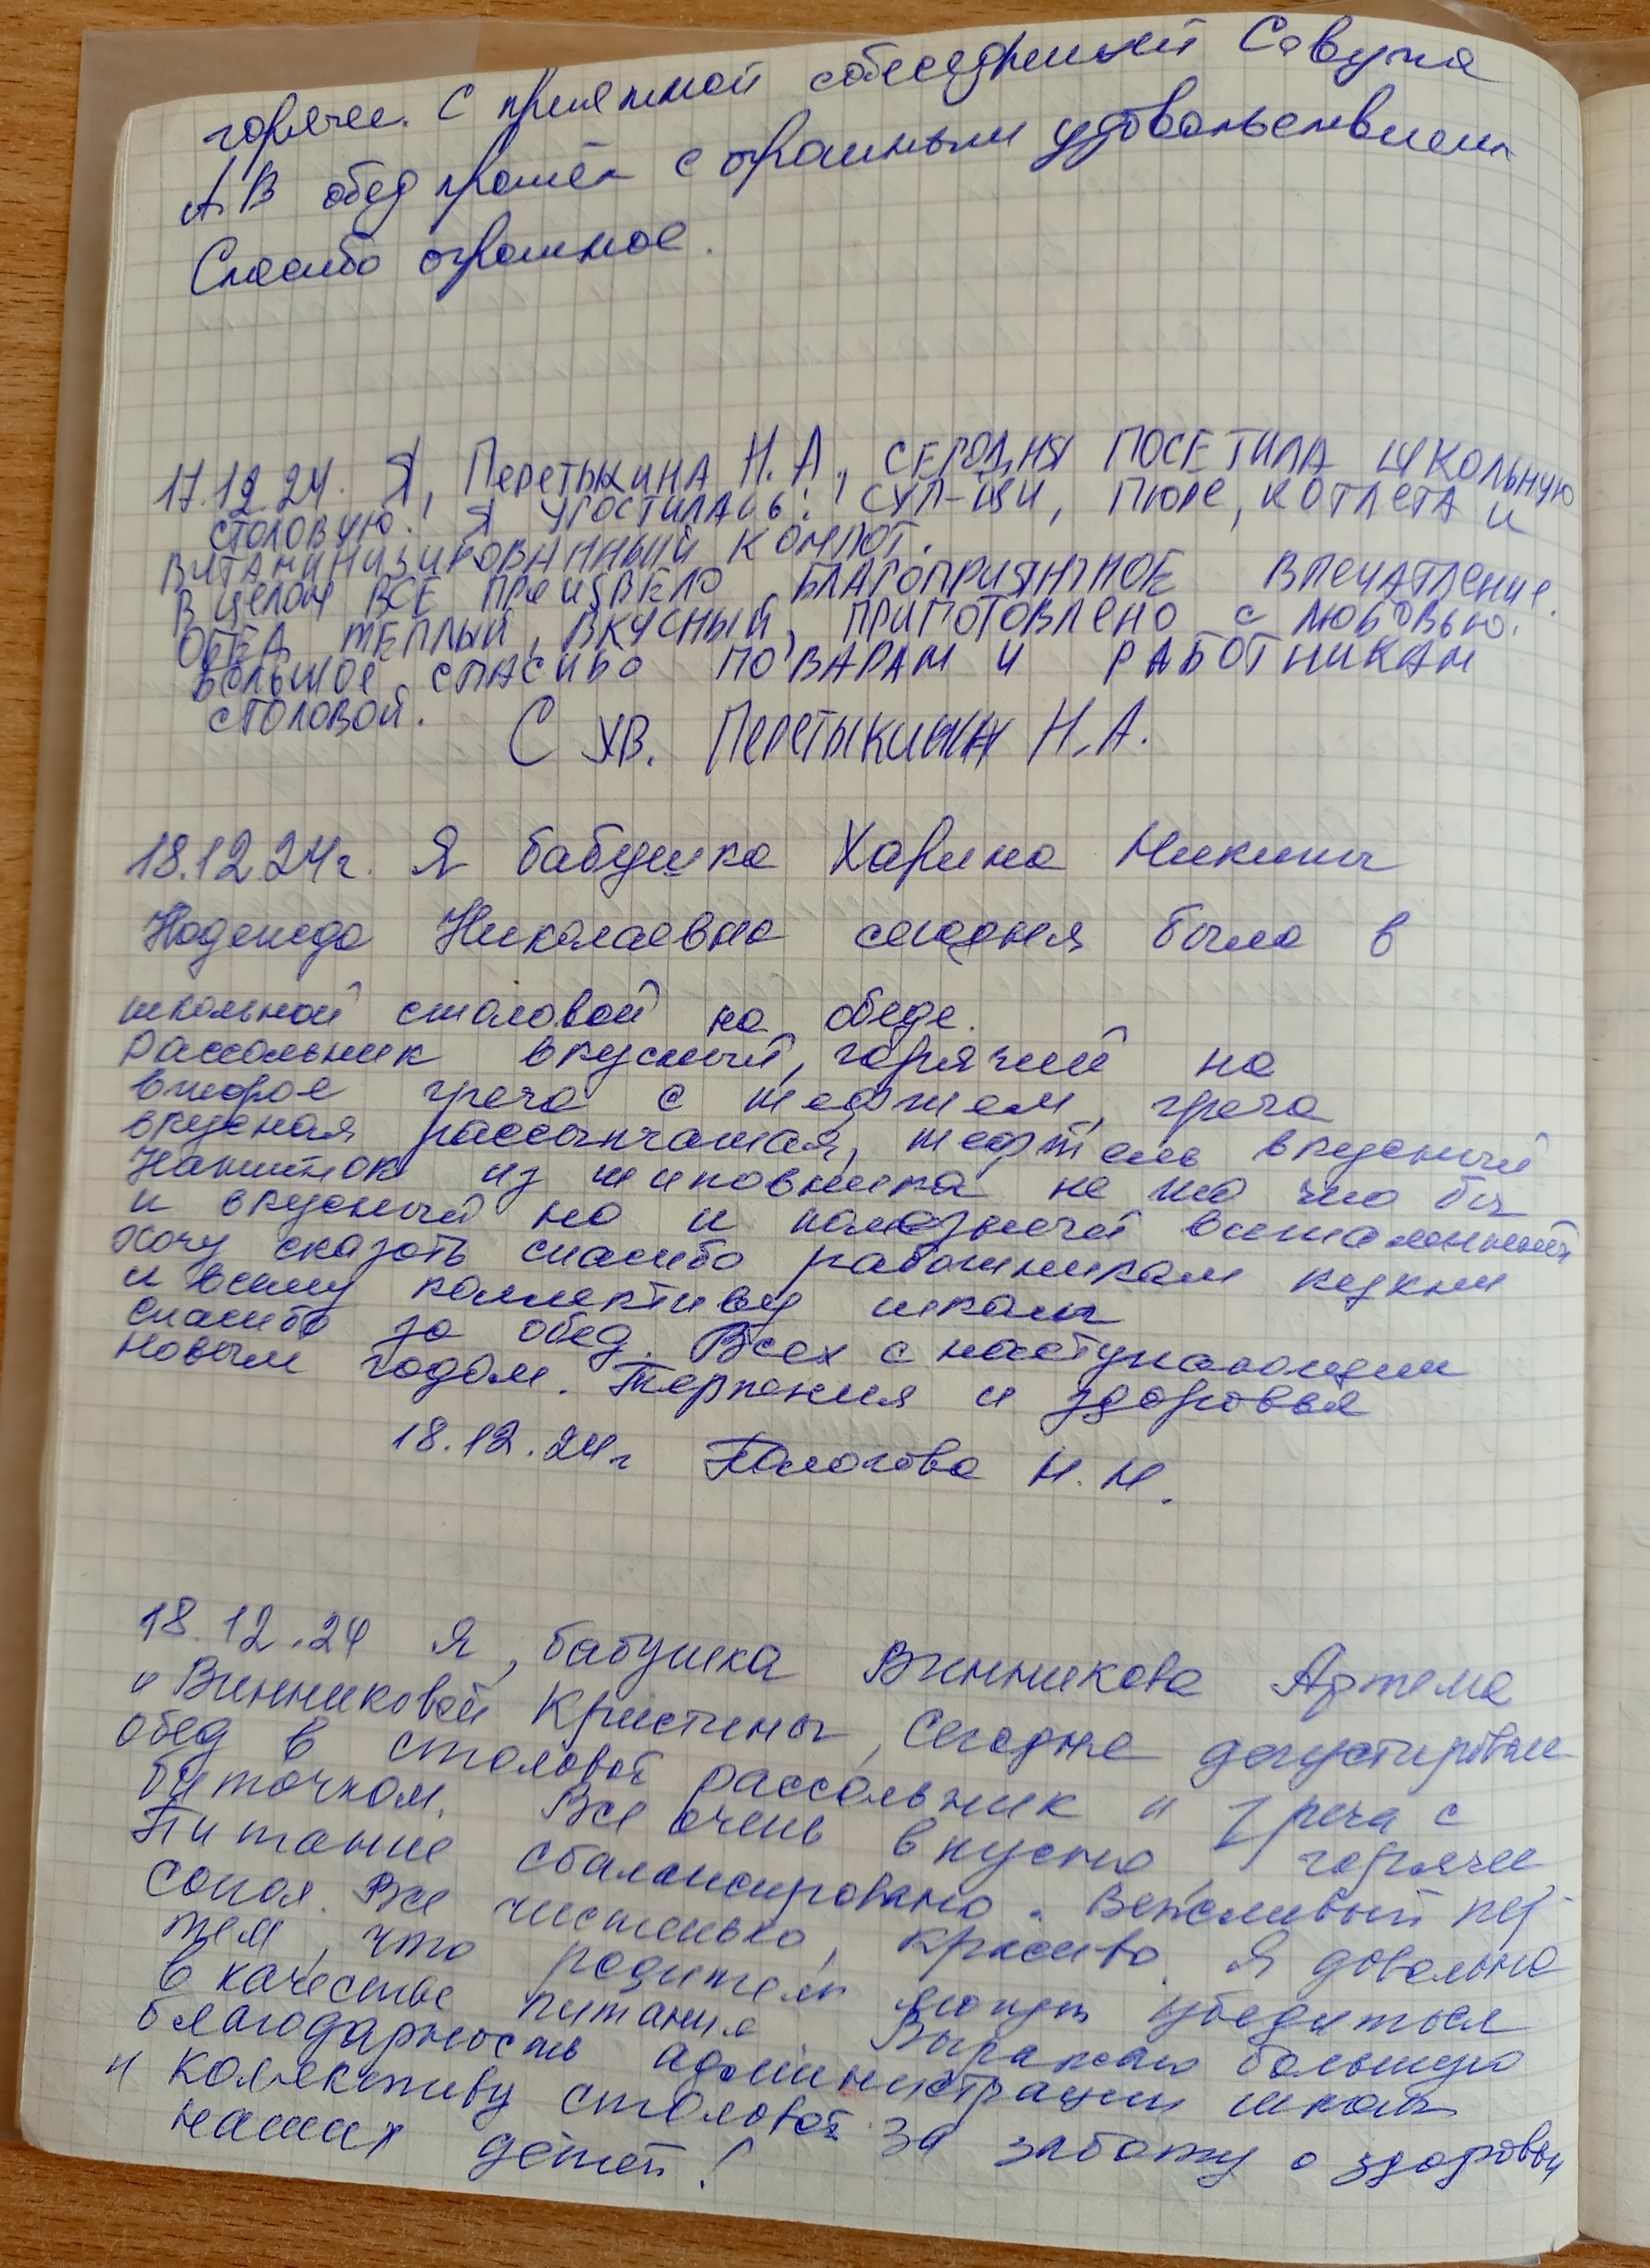 горячее. С приятной собеседницей Савуня
А.В обед прошёл с огромным удовольствием
Спасибо огромное.
17.12.24. Я, Перетыкина Н.А., СЕГОДНЯ ПОСЕТИЛА ШКОЛЬНУЮ
СТОЛОВУЮ. Я УГОСТИЛАСЬ: СУП-ЩИ, ПЮРЕ, КОТЛЕТА И
ВИТАМИНИЗИРОВАННЫЙ КОМПОТ.
В ЦЕЛОМ ВСЕ ПРОИЗВЕЛО БЛАГОПРИЯТНОЕ ВПЕЧАТЛЕНИЕ.
ОБЕД ТЁПЛЫЙ, ВКУСНЫЙ, ПРИГОТОВЛЕНО С ЛЮБОВЬЮ.
БОЛЬШОЕ СПАСИБО ПОВАРАМ И РАБОТНИКАМ
СТОЛОВОЙ.
С УВ. ПЕРЕТЫКИНА Н.А.
18.12.24г. Я бабушка Харина Никиты
Надежда Николаевна сегодня была в
школьной столовой на обеде.
Рассольник вкусный, горячий на
второе греча с тефтелем, греча
вкусная рассыпчатая, тефтель вкусный
Напиток из шиповника не то что бы
и вкусный но и полезный витаминный
Хочу сказать спасибо работникам кухни
и всему коллективу школы
спасибо за обед. Всех с наступающим
новым годом. Терпения и здоровья
18.12.24г Пологова Н.Н.
18.12.24 Я, бабушка Винникова Артема
и Винниковой Кристины, Сегодня дегустировали
обед в столовой рассольник и греча с
биточком. Все очень вкусно, горячее
Питание сбалансировано. Вежливый пер-
сонал. Все чистенько, красиво. Я довольна
тем, что родители могут убедиться
в качестве питания. Выражаю большую
благодарность администрации школы
и коллективу столовой за заботу о здоровьи
наших детей!